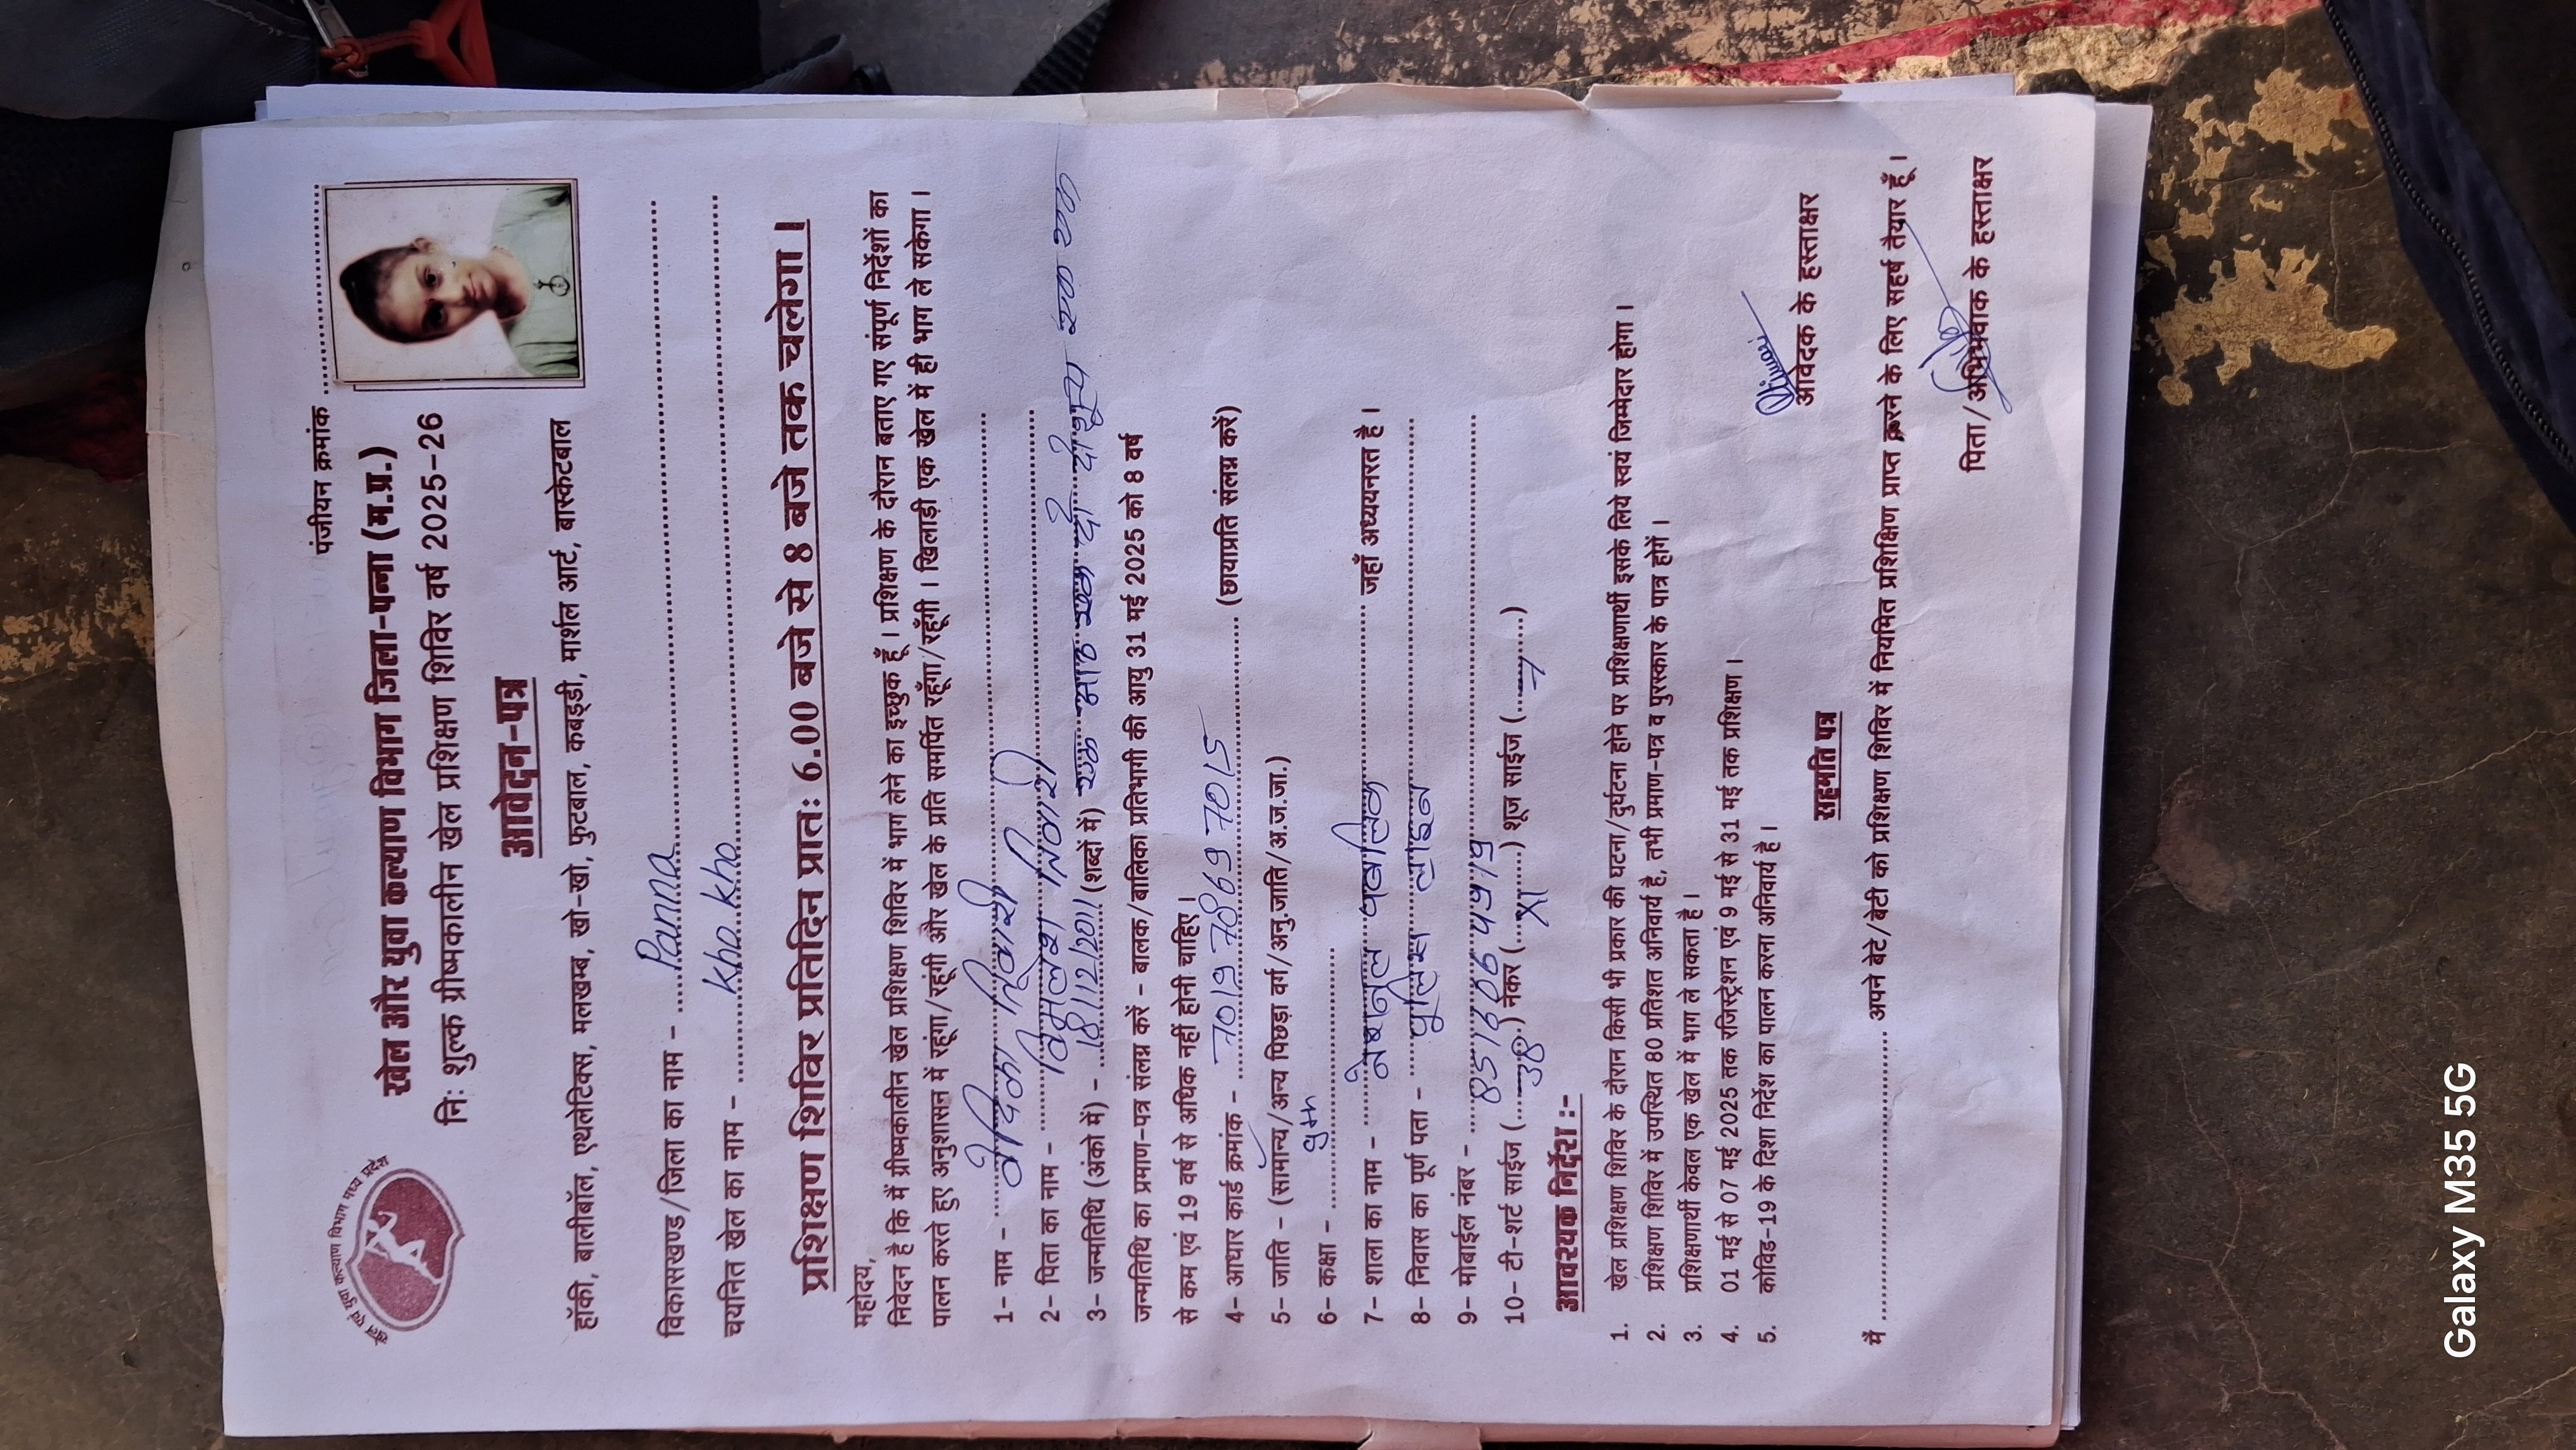 पंजीयन क्रमांक ....................
खेल एवं युवा कल्याण विभाग मध्य प्रदेश
खेल और युवा कल्याण विभाग जिला-पन्ना (म.प्र.)
निः शुल्क ग्रीष्मकालीन खेल प्रशिक्षण शिविर वर्ष 2025-26
आवेदन-पत्र
हॉकी, बालीबॉल, एथलेटिक्स, मलखम्ब, खो-खो, फुटबाल, कबड्डी, मार्शल आर्ट, बास्केटबाल
विकासखण्ड/जिला का नाम - Panna
चयनित खेल का नाम - Kho Kho
प्रशिक्षण शिविर प्रतिदिन प्रातः 6.00 बजे से 8 बजे तक चलेगा।
महोदय,
निवेदन है कि मैं ग्रीष्मकालीन खेल प्रशिक्षण शिविर में भाग लेने का इच्छुक हूँ। प्रशिक्षण के दौरान बताए गए संपूर्ण निर्देशों का
पालन करते हुए अनुशासन में रहूंगा/रहूंगी और खेल के प्रति समर्पित रहूँगा/रहूँगी। खिलाड़ी एक खेल में ही भाग ले सकेगा।
1- नाम - वेदिका तिवारी
2- पिता का नाम - विमलेश तिवारी
3- जन्मतिथि (अंको में) - 18/12/2011 (शब्दों में) एक आठ एक दो दो शून्य एक एक
जन्मतिथि का प्रमाण-पत्र संलग्न करें - बालक/बालिका प्रतिभागी की आयु 31 मई 2025 को 8 वर्ष
से कम एवं 19 वर्ष से अधिक नहीं होनी चाहिए।
4- आधार कार्ड क्रमांक - 7019 7869 7015 (छायाप्रति संलग्न करें)
5- जाति - (सामान्य/अन्य पिछड़ा वर्ग/अनु.जाति/अ.ज.जा.)
6- कक्षा - 9th
7- शाला का नाम - नेशनल पब्लिक जहाँ अध्ययनरत है।
8- निवास का पूर्ण पता - पुलिस लाइन
9- मोबाईल नंबर -
10- टी-शर्ट साईज (38) नेकर (XI) शूज साईज (7)
आवश्यक निर्देश :-
1. खेल प्रशिक्षण शिविर के दौरान किसी भी प्रकार की घटना/दुर्घटना होने पर प्रशिक्षणार्थी इसके लिये स्वयं जिम्मेदार होगा।
2. प्रशिक्षण शिविर में उपस्थित 80 प्रतिशत अनिवार्य है, तभी प्रमाण-पत्र व पुरस्कार के पात्र होगें।
3. प्रशिक्षणार्थी केवल एक खेल में भाग ले सकता है।
4. 01 मई से 07 मई 2025 तक रजिस्ट्रेशन एवं 9 मई से 31 मई तक प्रशिक्षण।
5. कोविड-19 के दिशा निर्देश का पालन करना अनिवार्य है।
आवेदक के हस्ताक्षर
सहमति पत्र
मैं .................... अपने बेटे/बेटी को प्रशिक्षण शिविर में नियमित प्रशिक्षिण प्राप्त करने के लिए सहर्ष तैयार हूँ।
पिता/अभिभावक के हस्ताक्षर
Galaxy M35 5G